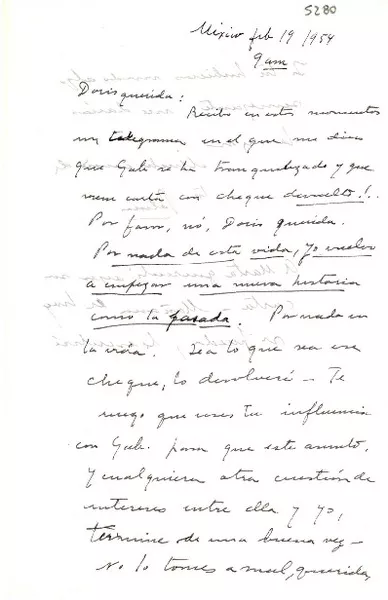 5280
México feb 19/1954
9 am
Doris querida:
Recibo en estos momentos
un telegrama en el que me dices
que Gabi se ha tranquilizado y que
viene carta con cheque devuelto!.
Por favor, nó, Doris querida.
Por nada de esta vida, yo vuelvo
a empezar una nueva historia
como la pasada. Por nada en
la vida. Sea lo que sea ese
cheque, lo devolveré – Te
ruego que uses tu influencia
con Gabi. para que este asunto,
y cualquiera otra cuestión de
intereses entre ella y yo,
termine de una buena vez –
No lo tomes a mal, querida,